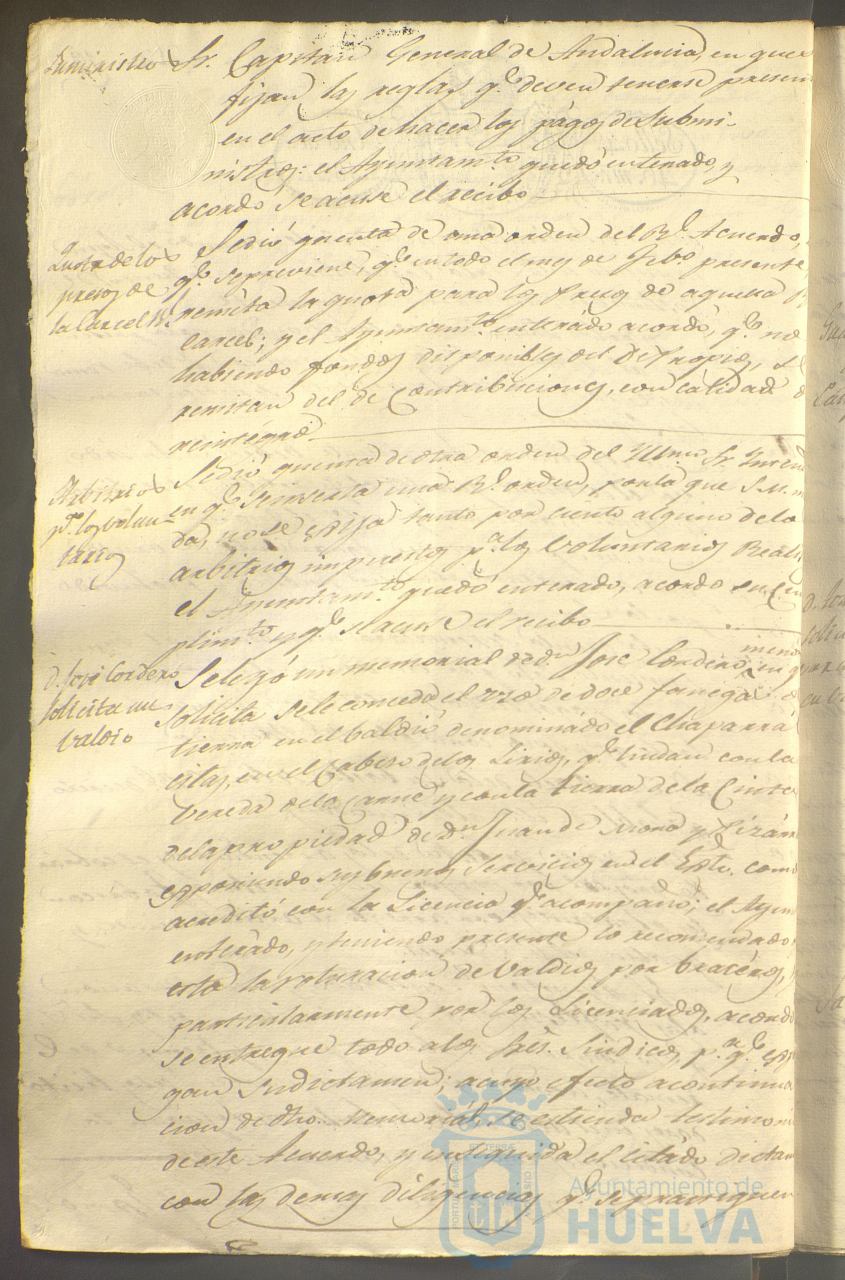 Suministro
Sr. Capitan General de Andalucia, en que
fijan las reglas qe. deven tenerse presen
en el acto de hacer los pagos de submi-
nistros: el Ayuntamto. quedó enterado, y
acordó se acuse el recibo
Quota de los
presos de
la Carcel Rl.
Se dió quenta de una orden del Rl. Acuerdo,
qe. se previene, qe. en todo el mes de Febo. presente
remita la quota para los presos de aquella R
Carcel; y el Ayuntamto. enterado acordó, qe. no
habiendo fondos disponibles del de Propios, se
remitan del de Contribuciones, con calidad d
reintegro
Arbitrios
pa. los volun-
tarios
Se dió quenta de otra orden del Sr. Inten
en qe. se inserta una Rl. orden, por la que S.M. m
da, no se exija tanto por ciento alguno de lo
arbitrios impuestos pa. los Voluntarios Reali
el Ayuntamto. quedó enterado, acordó su cum
plimto. y qe. se acuse el recibo
D. José Cordero
solicita un
valdio
Se leyó un memorial de dn. José Cordero menor en q
solicita se le conceda el uso de doce fanegas d
tierra en el baldio denominado el Chaparra
citas, en el Cabeso de los Lirios, qe. lindan con la
Vereda de la Carne y con la tierra de la Cinta
de la propiedad de dn. Juan de Mora y
esponiendo sus buenos Servicios en el como
acreditó con la Licencia qe. acompañó; el Ayun
enterado, y teniendo presente lo recomendado
está la roturacion de Valdios por braceros,
particularmente por los Licenciados, acordó
se entregue todo a los Sres. Sindicos, pa. qe. espon
gan su dictamen; a cuyo efecto a continua
cion de dho. memorial, se estienda testimoni
de este Acuerdo, y en seguida el citado dictam
con las demas diligencias qe. se practiquen
Ayuntamiento de
HUELVA